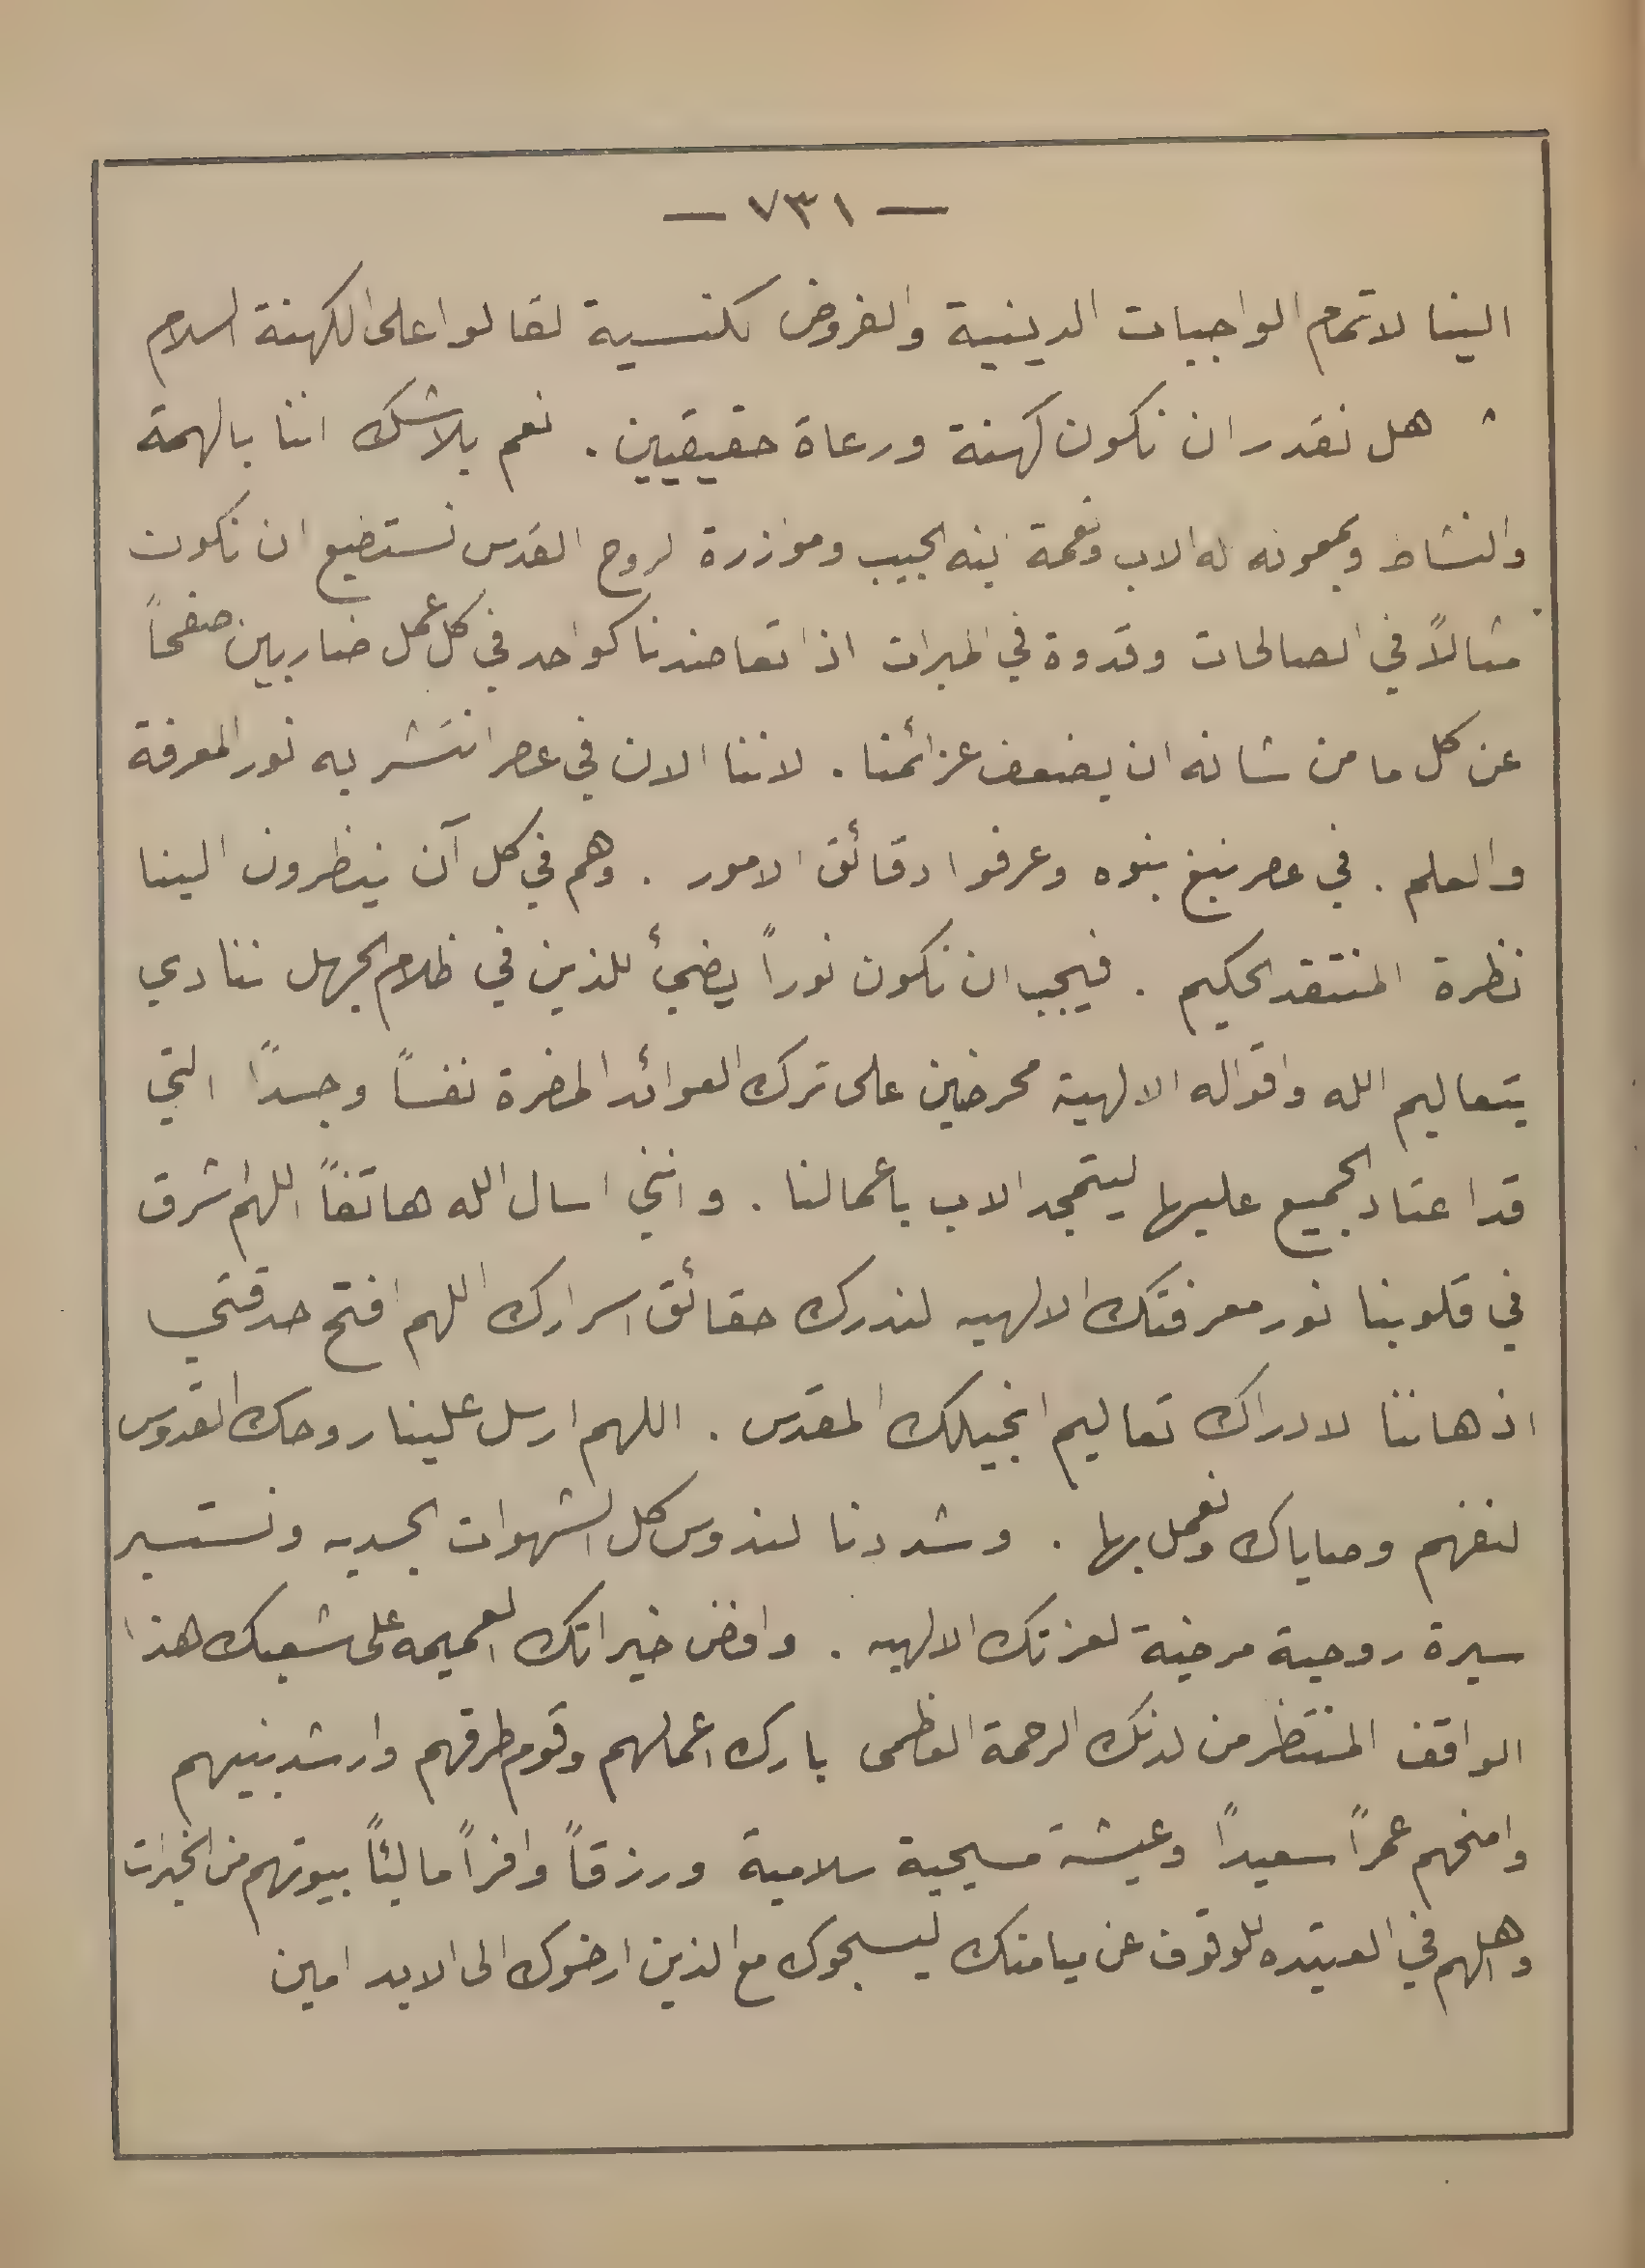 — ٧٣١ —
الينا لاتمام الواجبات الدينية والفروض لكنسية لقالوا على الكهنة السلام
هل نقدر ان نكون كهنة ورعاة حقيقيين . نعم بلا شك اننا بالهمة
والنشاط وبمعونه له الاب ونعمة بنه الحبيب وموزرة لروح القدس نستضيع ان نكون
مثالاً في الصالحات وقدوة في المبرات اذا تعاضدنا كواحد في كل عمل ضاربين صفحاً
عن كل ما من شانه ان يضعف عزائمنا . لاننا الان في عصر انتشر به نور المعرفة
والعلم . في عصر نبغ بنوه وعرفوا دقائق الامور . وهم في كل آن ينظرون الينا
نظرة المنتقد الحكيم . فيجب ان نكون نوراً يضئ للذين في ظلام الجهل ننادي
بتعاليم الله واقواله الالهية محرضين على ترك العوائد المضرة نفساً وجسداً التي
قد اعتاد الجميع عليها ليتمجد الاب باعمالنا . وانني اسال الله هاتفاً اللهم اشرق
في قلوبنا نور معرفتك الالهيه لندرك حقائق اسرارك اللهم افتح حدقتي
اذهاننا لادراك تعاليم انجيلك المقدس . اللهم ارسل علينا روحك القدوس
لنفهم وصاياك ونعمل بها . وشددنا لندوس كل الشهوات الجسديه ونستسير
سيرة روحية مرضية لعزتك الالهيه . وافض خيراتك لعميمه على شعبك هذا
الواقف المنتظر من لدنك الرحمة العظمى بارك اعمالهم وقوم طرقهم وارشد بنيهم
وامنحهم عمراً سعيداً وعيشة مسيحية سلامية ورزقاً وافراً مالئاً بيوتهم من الخيرات
وهلهم في العتيده للوقوف عن ميامنك ليسبحوك مع الذين ارضوك الى الابد امين